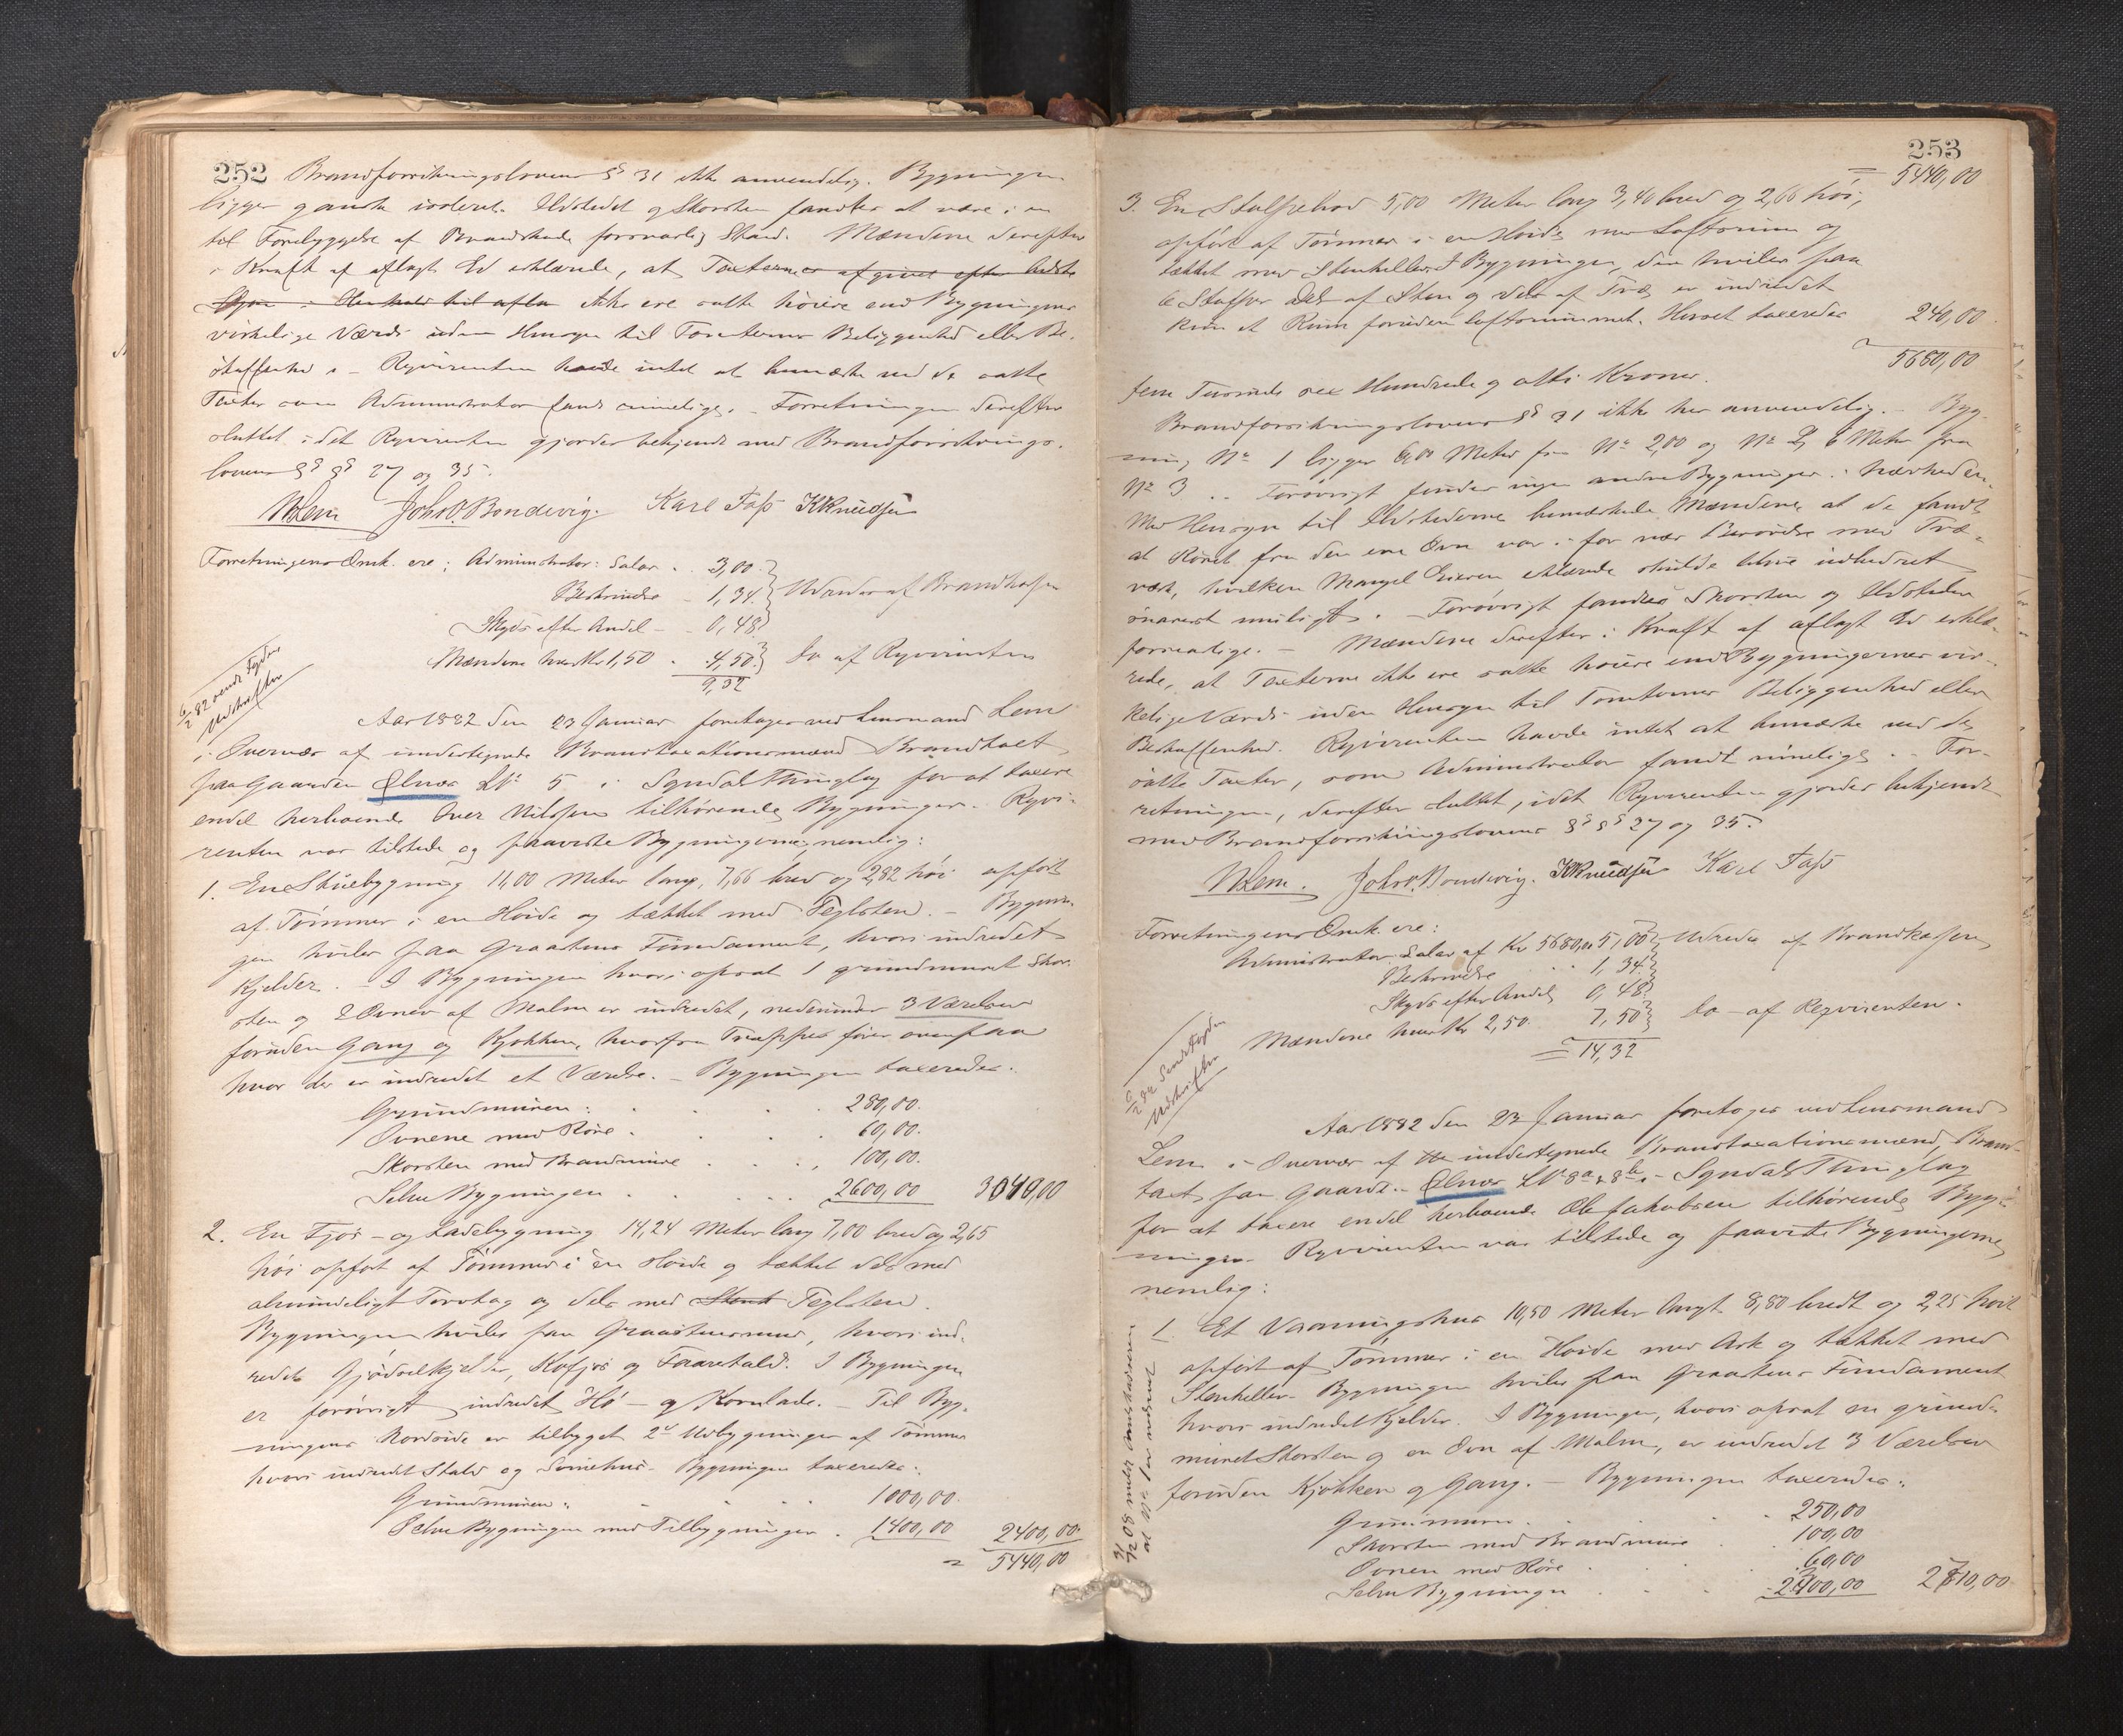 252 Brandforsikringslovens § 31 ikke anvendelig. Bygningen
ligger ganske isoleret. Ildstedet og Skorsten fandtes at være i en
til Forebyggelse af Brandskade forsvarlig Stand. Mændene derefter
i Kraft af aflagt Ed erklærede, at Taxterne er afgivet efter bedste
Skjøn i Henhold til afla ikke ere satte høiere end Bygningens
virkelige Værdi uden Hensyn til Tomternes Beliggenhed eller Be-
skaffenhed. - Reqvirenten havde intet at bemærke ved de satte
Taxter som Administrator fandt rimelige. - Forretningen derefter
sluttet idet Reqvirenten gjordes bekjendt med Brandforsikrings-
lovens §§ 27 og 35.
Lem Joh. O. Bondevig. Karl Fass K Knudsen
Forretningens Omk. ere: Administrator: Salar . . 3,00.
Beskrivelse - 1,34. Udredes af Brandkassen
Skyds efter Andel - - 0,48
Mændene hver Kr 1,50 . 4,50. do af Reqvirenten
9,32
6/2 82 sendt Fogden
Udskriften
Aar 1882 den 23 Januar foretoges ved Lensmand Lem
i Overvær af undertegnede Brandtaxationsmænd Brandtaxt
paa Gaarden Ølnæs LN: 5 i Sogndals Thinglag for at taxere
endel herboende Iver Nilssen tilhørende Bygninger. Reqvi-
renten var tilstede og paaviste Bygningerne, nemlig:
1. En Stuebygning 11,00 Meter lang, 7,66 bred og 2,82 høi opført
af Tømmer i en Høide og tækket med Teglsten. - Bygnin-
gen hviler paa Graastens Fundament, hvori indredet
Kjelder. - I Bygningen hvori opsat 1 grundmuret Skor-
sten og 2 Ovner af Malm er indredet, nedenunder 3 Værelser
foruden Gang og Kjøkken, hvorfra Trappe fører ovenpaa
hvor der er indredet et Værelse. - Bygningen taxeredes.
Grundmuren: . . . . 280,00.
Ovnene med Röre . . . . 60,00.
Skorsten med Brandmure . . . . 100,00.
Selve Bygningen . . . . 2600,00 3040,00
2. En Fjøs - og Ladebygning 14,24 Meter lang 7,00 bred og 2,65
høi opført af Tømmer i en Høide og tækket dels med
almindeligt Torvtag og dels med Stenh Teglsten.
Bygningen hviler paa Graastensmur, hvori ind-
redet Gjødselkjelder, Kofjøs og Faarestald. I Bygningen
er forøvrigt indredet Hø - og Kornlade. - Til Byg-
ningens Nordside er tilbygget 2de Udbygninger af Tømmer
hvori indredet Stald og Svinehus. Bygningen taxeredes:
Grundmuren: - - . . 1000,00.
Selve Bygningen med Tilbygninger . 1400,00 2400,00.
= 5440,00
253
= 5440,00
3. En Stolpebod 5,00 Meter lang 3,40 bred og 2,66 høi,
opført af Tømmer i en Høide med Loftsrum og
tækket med Stenheller. I Bygningen, der hviler paa
6 Stolper dels af Sten og dels af Træ, er indredet
kun et Rum foruden loftsrummet. Huset taxeredes 240,00
5680,00
fem Tusinde sex Hundrede og otti Kroner.
Brandforsikringslovens § 31 ikke her anvendelig. - Byg-
ning No 1 ligger 6,00 Meter fra No 2,00 og No 2, 6 Meter fra
No 3 . . Forøvrigt findes ingen andre Bygninger i Nærheden.
Med Hensyn til Ildstederne bemærkede Mændene, at de fandt
at Röret fra den ene Ovn var i for nær Berørelse med Træ-
værk, hvilken Mangel Eieren erklærede skulde blive udbedret
snarest muligt. - Forøvrigt fandtes Skorsten og Ildsteder
forsvarlige. - Mændene derefter i Kraft af aflagt Ed erklæ-
rede, at Taxterne ikke ere satte høiere end Bygningernes vir-
kelige Værdi uden Hensyn til Tomternes Beliggenhed eller
Beskaffenhed. Reqvirenten havde intet at bemærke ved de
satte Taxter, som Administrator fandt rimelige. - For-
retningen, derefter sluttet, idet Reqvirenten gjordes bekjendt
med Brandforsikringslovens §§ 27 og 35.
Lem. Joh. O. Bondevig. K Knudsen Karl Fass
Forretningens Omk. ere:
Administrator: Salar af Kr 5680,00 5,00 Udredes af Brandkassen
Beskrivelse . . 1,34
Skyds efter Andel 0,48
Mændene hver Kr 2,50. 7,50 do - af Reqvirenten.
= 14,32
6/2 82 Sendt Fogden
Udskriften
Aar 1882 den 23 Januar foretoges ved Lensmand
Lem i Overvær af undertegnede Brandtaxationsmænd, Brand-
taxt paa Gaarden Ølnæs LN: 8a & 8b i Sogndals Thinglag
for at taxere endel herboende Ole Jakobsen tilhørende Byg-
ninger. Reqvirenten var tilstede og paaviste Bygningerne,
nemlig:
1. Et Vaaningshus 10,50 Meter langt 8,80 bredt og 2,25 høit
opført af Tømmer i en Høide med Ark og tækket med
Stenheller. Bygningen hviler paa Graastens Fundament
hvori indredet Kjelder. I Bygningen, hvori opsat en grund-
muret Skorsten og en Ovn af Malm, er indredet 3 Værelser
foruden Kjøkken og Gang. - Bygningen taxeredes:
Grundmuren . . . . 250,00
Skorsten med Brandmure . . 100,00
Ovnen med Röre . . . 60,00
Selve Bygningen . . . 2400,00 2810,00